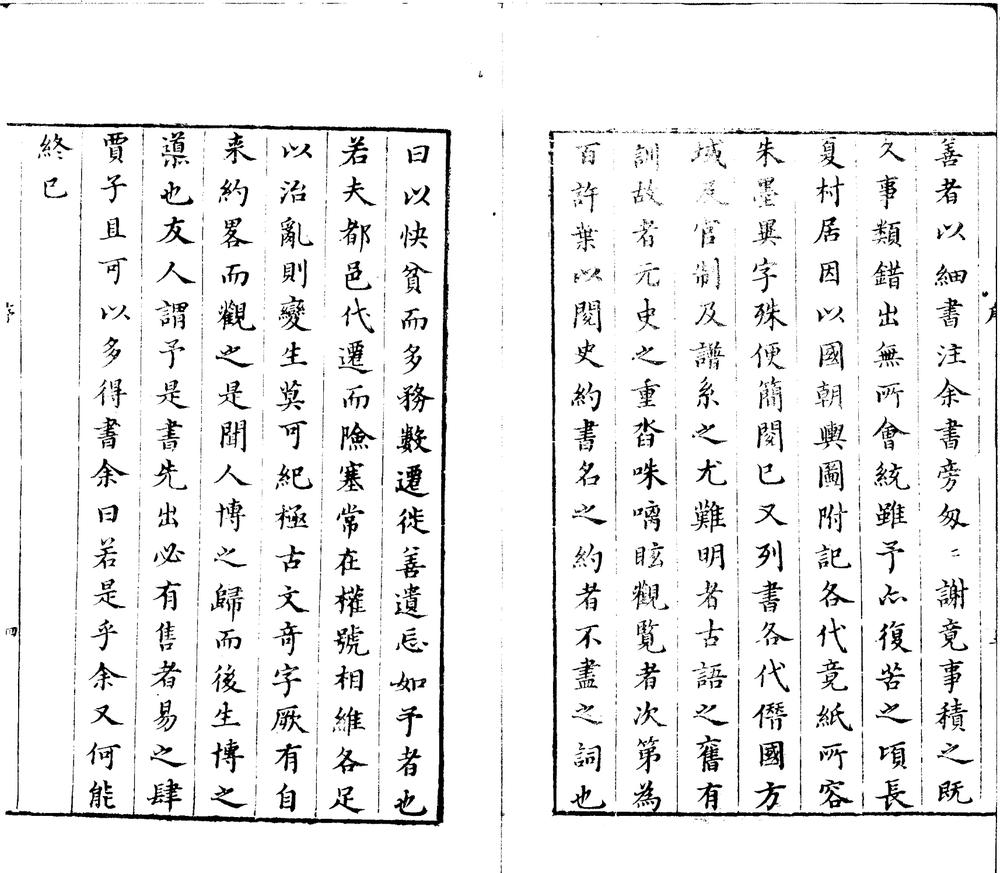 善者以細書注余書旁匆〻謝竟事積之既
久事類錯出無所會統雖予亦復苦之頃長
夏村居因以國朝輿圖附記各代竟紙所容
朱墨異字殊便簡閱已又列書各代僭國方
域及官制及譜系之尤難明者古語之舊有
訓故者元史之重沓咮嚅眩觀覧者次第為
百許葉以閱史約書名之約者不盡之詞也
曰以快貧而多務數遷徙善遺忘如予者也
若夫都邑代遷而險塞常在權號相維各足
以治亂則變生莫可紀極古文竒字厥有自
来約畧而觀之是聞人博之歸而後生博之
導也友人謂予是書先出必有售者易之肆
賈子且可以多得書余曰若是乎余又何能
終已
序
四